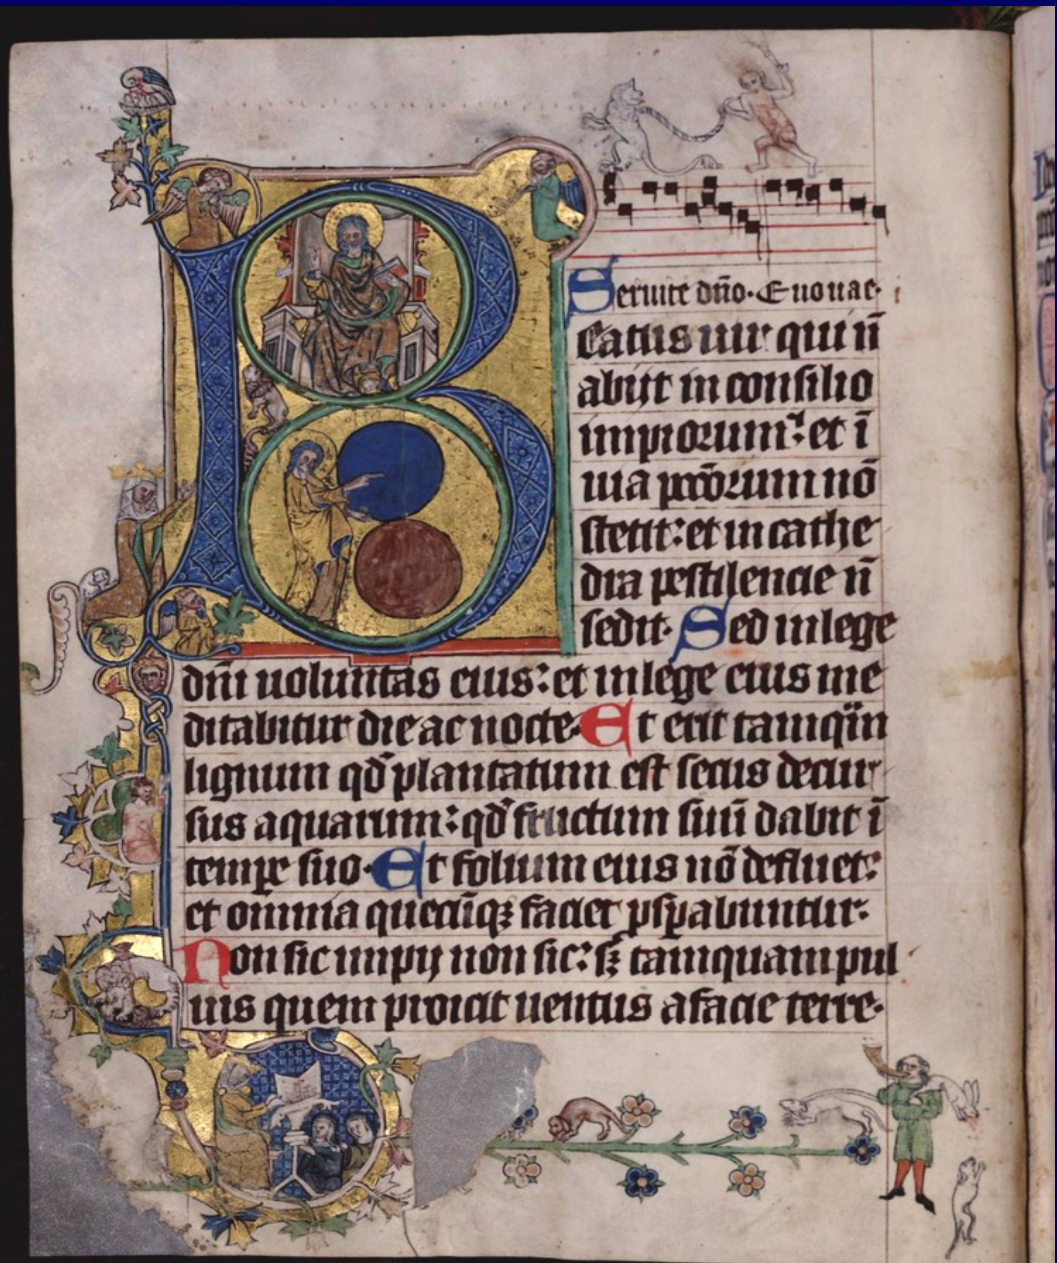 Seruite dño. Euouae.
Beatus uir qui ñ
abijt in consilio
impiorum: et ī
uia pccõrum nõ
stetit: et in cathe
dra pestilencie ñ
sedit. Sed in lege
dñi uoluntas eius: et in lege eius me
ditabitur die ac nocte. Et erit tamq̃m
lignum qd̾ plantatum est secus decur
sus aquarum: qd̾ fructum suũ dabit ī
tempe suo. Et folium eius nõ defluet:
et om̃ia quecũqꝫ faciet psꝑabuntur.
Non sic impij non sic: sꝫ tamquam pul
uis quem proicit uentus a facie terre.